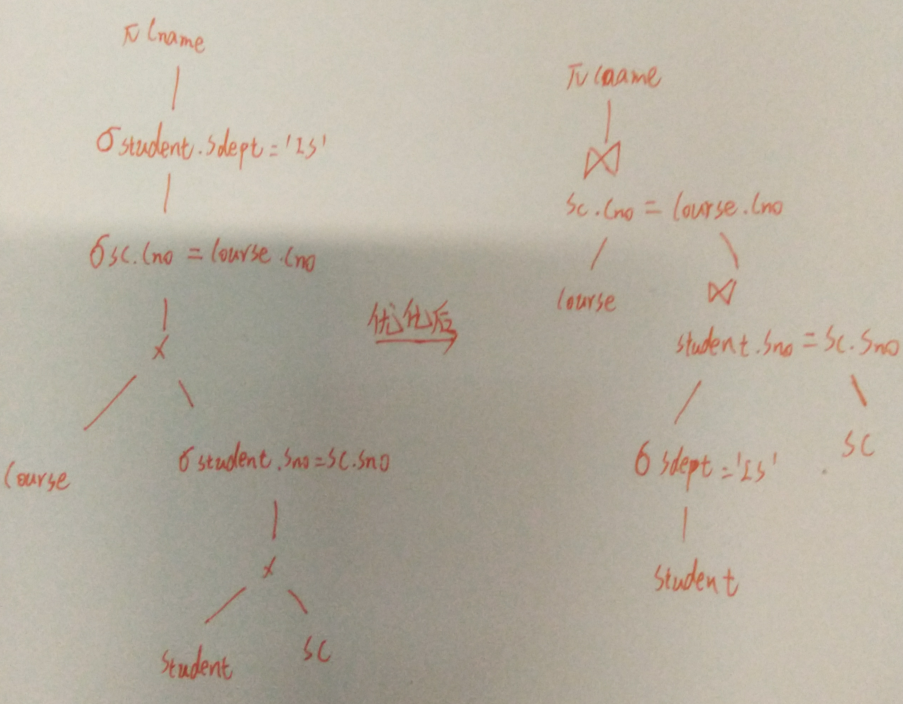 π Cname
σ student.Sdept='IS'
σ SC.Cno = Course.Cno
×
Course
σ student.Sno=SC.Sno
×
Student
SC
优化后
π Cname
⋈
SC.Cno = Course.Cno
Course
⋈
student.Sno = SC.Sno
σ Sdept='IS'
SC
Student